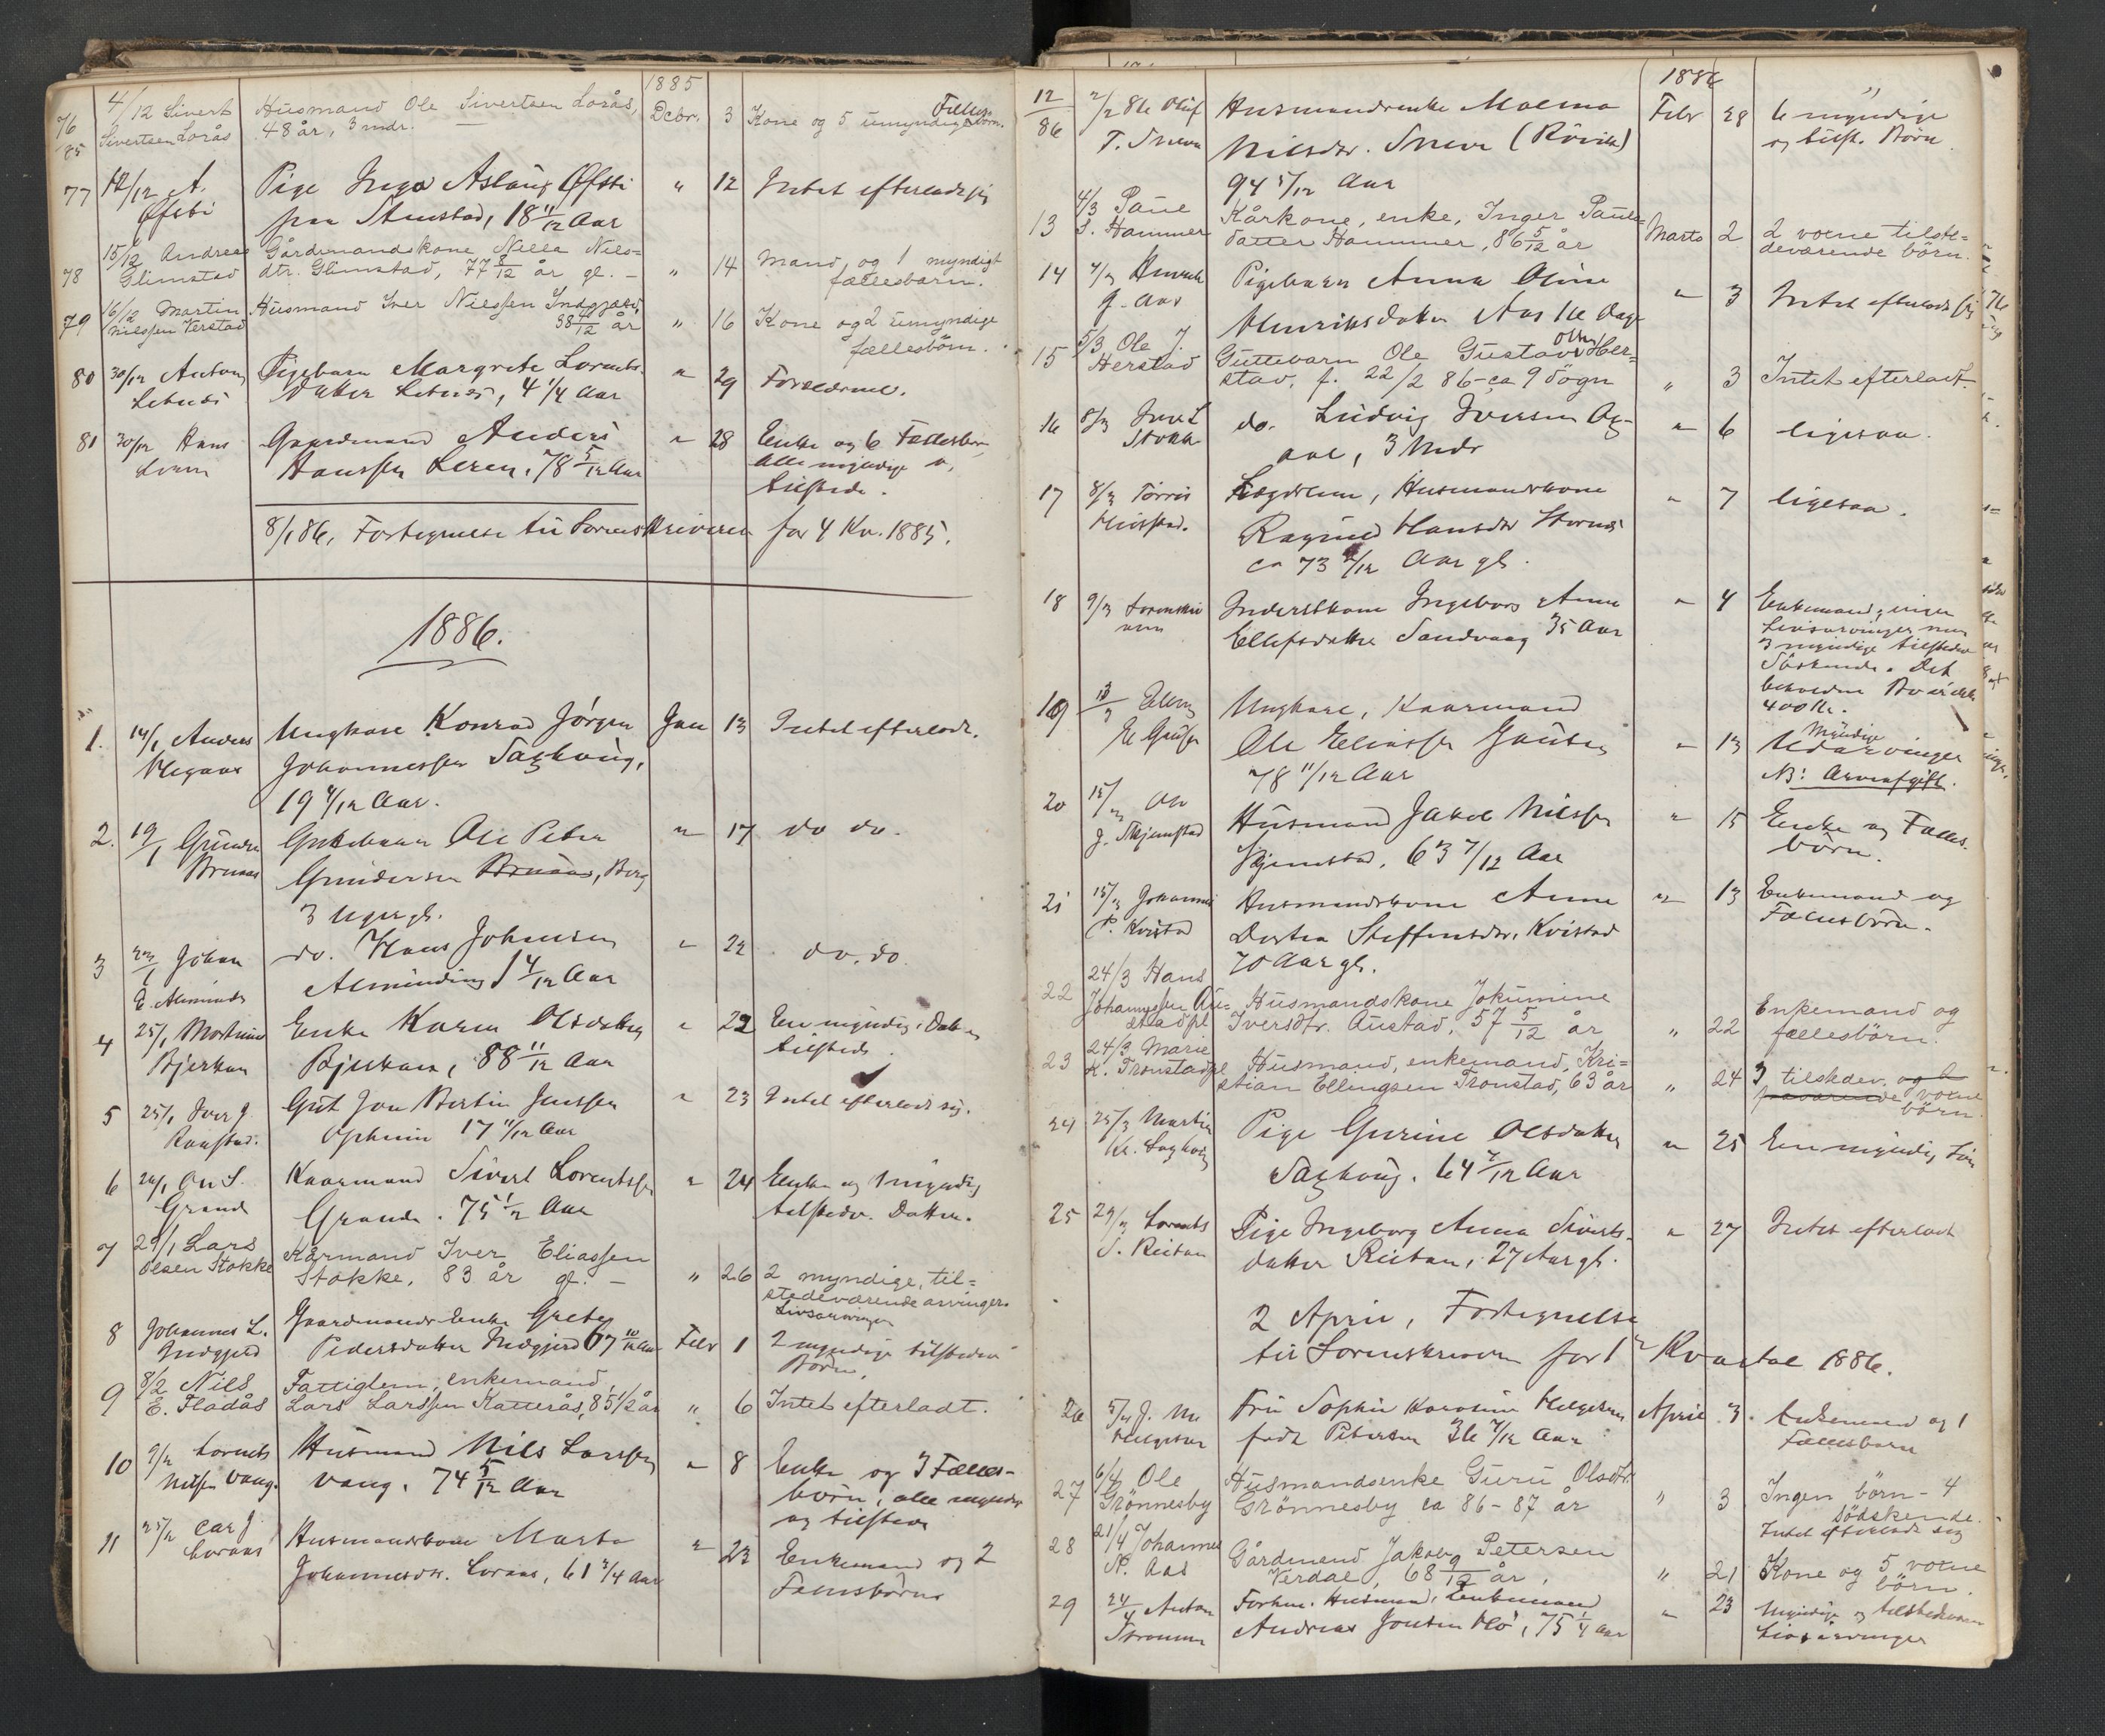 1885
76/85 4/12 Sivert Husmand Ole Sivertsen Lorås, Decbr. 3 Kone og 5 umyndige Fælles-
Sivertsen Lorås 48 år, 3 mdr. børn.
77 12/12 A. Pige Inga Aslaug Øfsti " 12 Intet efterladt sig
Øfsti fra Stamstad, 18 11/12 Aar
78 15/12 Andreas Gårdmandskone Nilla Nils=
Glimstad dtr. Glimstad, 77 8/12 år gl. – " 14 Mand og 1 myndigt
fællesbarn.
79 16/12 Martin Husmand Iver Nielssen Indgjærd,
Nielssen Verstad 38 4/12 år " 16 Kone og 2 umyndige
fællesbørn.
80 30/12 Anton Pigebarn Margrete Lorents-
datter Letnes, 4 1/4 Aar " 29 Forældrene.
Letnes
81 30/12 Hans Gaardmand Anders " 28 Enke og 6 Fællesbørn
Leren Hanssen Leren, 78 5/12 Aar alle myndige o,
tilstede.
8/1 86, Fortegnelse til Sorenskriveren for 4 Kv. 1885.
1886.
1. 14/1 Anders Ungkarl Konrad Jørgen Jan 13 Intet efterladt.
Megaar Johannessen Saghaug,
19 4/12 Aar.
2. 19/1 Gunder Guttebarn Ole Peter " 17 do do.
Brunaas Gundersen Brunaas, Berg
3 Uger gl.
3 22/1 Johan do. Hans Johansen " 22 do. do.
E. Alminding Alminding 1 4/12 Aar
4 25/1 Mortinus Enke Karen Olsdatter " 22 En myndig Datter
Bjerkan Bjerkan, 88 11/12 Aar tilstede.
5 25/1 Iver J. Gut Jon Bertin Jenssen " 23 Intet efterladt sig.
Ranstad. Opheim 17 11/12 Aar
6 26/1 Ole S. Kaarmand Sivert Lorentssen " 24 Enke og 1 myndig
Grande Grande. 75 1/2 Aar tilstedev. Datter.
7 29/1 Lars Kårmand Iver Eliassen
Olsen Stokke Stokke, 83 år gl. – " 26 2 myndige, til=
stedeværende arvinger.
Livsarvinger
8 Johannes L. Gaardmands Enke Grete
Indgjerd Pedersdatter Indgjerd 67 10/12 Aar Febr 1 2 myndige tilstedev
Børn.
9 8/2 Nils Fattiglem, enkemand,
E. Fladås Lars Larssen Katterås, 85 1/2 år " 6 Intet efterladt.
10 9/2 Lorents Husmand Nils Larssen " 8 Enke og 3 Fælles-
Nilssen Vang. Vang. 74 5/12 Aar børn, alle myndige
og tilstede
11 25/2 Carl J. Husmandskone Marta " 23 Enkemand og 2
Loraas Johannesdtr. Loraas, 61 3/4 Aar Fællesbørn
1886
12/86 2/2 86 Oluf Husmandsenke Malena Febr 28 6 myndige
T. Sneve Nilsdtr. Sneve (Røvik) og tilst. Børn
94 5/12 Aar
13 4/3 Paul Kårkone, enke, Inger Pauls=
S. Hammer datter Hammer, 86 5/12 år Marts 2 2 voxne tilste=
deværende børn.
14 4/3 Henrik Pigebarn Anna Oline
J. Aas Henriksdatter Aas 16 Dage " 3 Intet efterladt sig
15 5/3 Ole J. Guttebarn Ole Gustav Olsen Her=
Herstad stad, f. 22/2 86 – ca 9 døgn " 3 Intet efterladt.
16 8/3 Iver L do. Ludvig Iversen Ag- " 6 ligesaa.
Stokke aal, 3 Mdr
17 8/3 Torris Lægdslem, Husmandskone " 7 ligesaa.
Heistad. Ragnild Hansdtr Stornes
ca 73 2/12 Aar gl.
18 9/3 Lorenskri Inderstkone Ingeborg Anna " 4 Enkemand, ingen
Ellefsdatter Sandvaag 35 Aar Livsarvinger men
3 myndige tilstedev
Søskende. Det
beholdne Bo er ikke
400 Kr.
19 13/3 Elling Ungkarl, Kaarmand
Ole Eliassen Gausen " 13 Myndige Udarvinger
78 11/12 Aar NB: Arveafgift.
20 15/3 Ole Husmand Jakob Nilssen " 15 Enke og Fælles-
J. Skjemstad Skjemstad, 63 7/12 Aar børn.
21 15/3 Johannes Husmandskone Anne " 13 Enkemand og
P. Kvistad Dortea Steffensdtr. Kvistad Fællesbørn.
70 Aar gl.
22 24/3 Hans Husmandskone Jokumine Enkemand og
Johannessen Au=
stadpl Iversdtr. Austad, 57 5/12 år " 22 fællesbörn.
23 24/3 Marie Husmand, enkemand, Kri=
K. Tronstadpl stian Ellingsen Tronstad, 63 år " 24 3 tilstdev. og 2
fraværende voxne
börn.
24 25/3 Martin Pige Gurine Olsdatter " 25 En myndig Søn
Kr. Saghaug Saghaug. 64 7/12 Aar
25 29/3 Lorents Pige Ingeborg Anna Siverts- " 27 Intet efterladt
S. Reitan datter Reitan, 27 Aar gl.
2 April, Fortegnelse
til Sorenskriveren for 1ste Kvartal 1886.
26 5/4 J. Nic Fru Sophie Karoline Helgesen April 3. Enkemand og 1
Helgesen født Petersen 36 7/12 Aar Fællesbarn
27 6/4 Ole Husmandsenke Guru Olsdtr.
Grönnesby Grönnesby ca 86–87 år " 3 Ingen börn – 4
södskende.
Intet efterladt sig
28 21/4 Johannes Gårdmand Jakob Petersen
N. Aas Verdal, 68 9/12 år, " 21 Kone og 5 voxne
börn.
29 24/4 Anton Forhen. Husmand, Enkemand " 23 Myndige og tilstedeværen
Strømmen Andreas Jonsen Mo, 75 1/4 Aar Livsarvinger